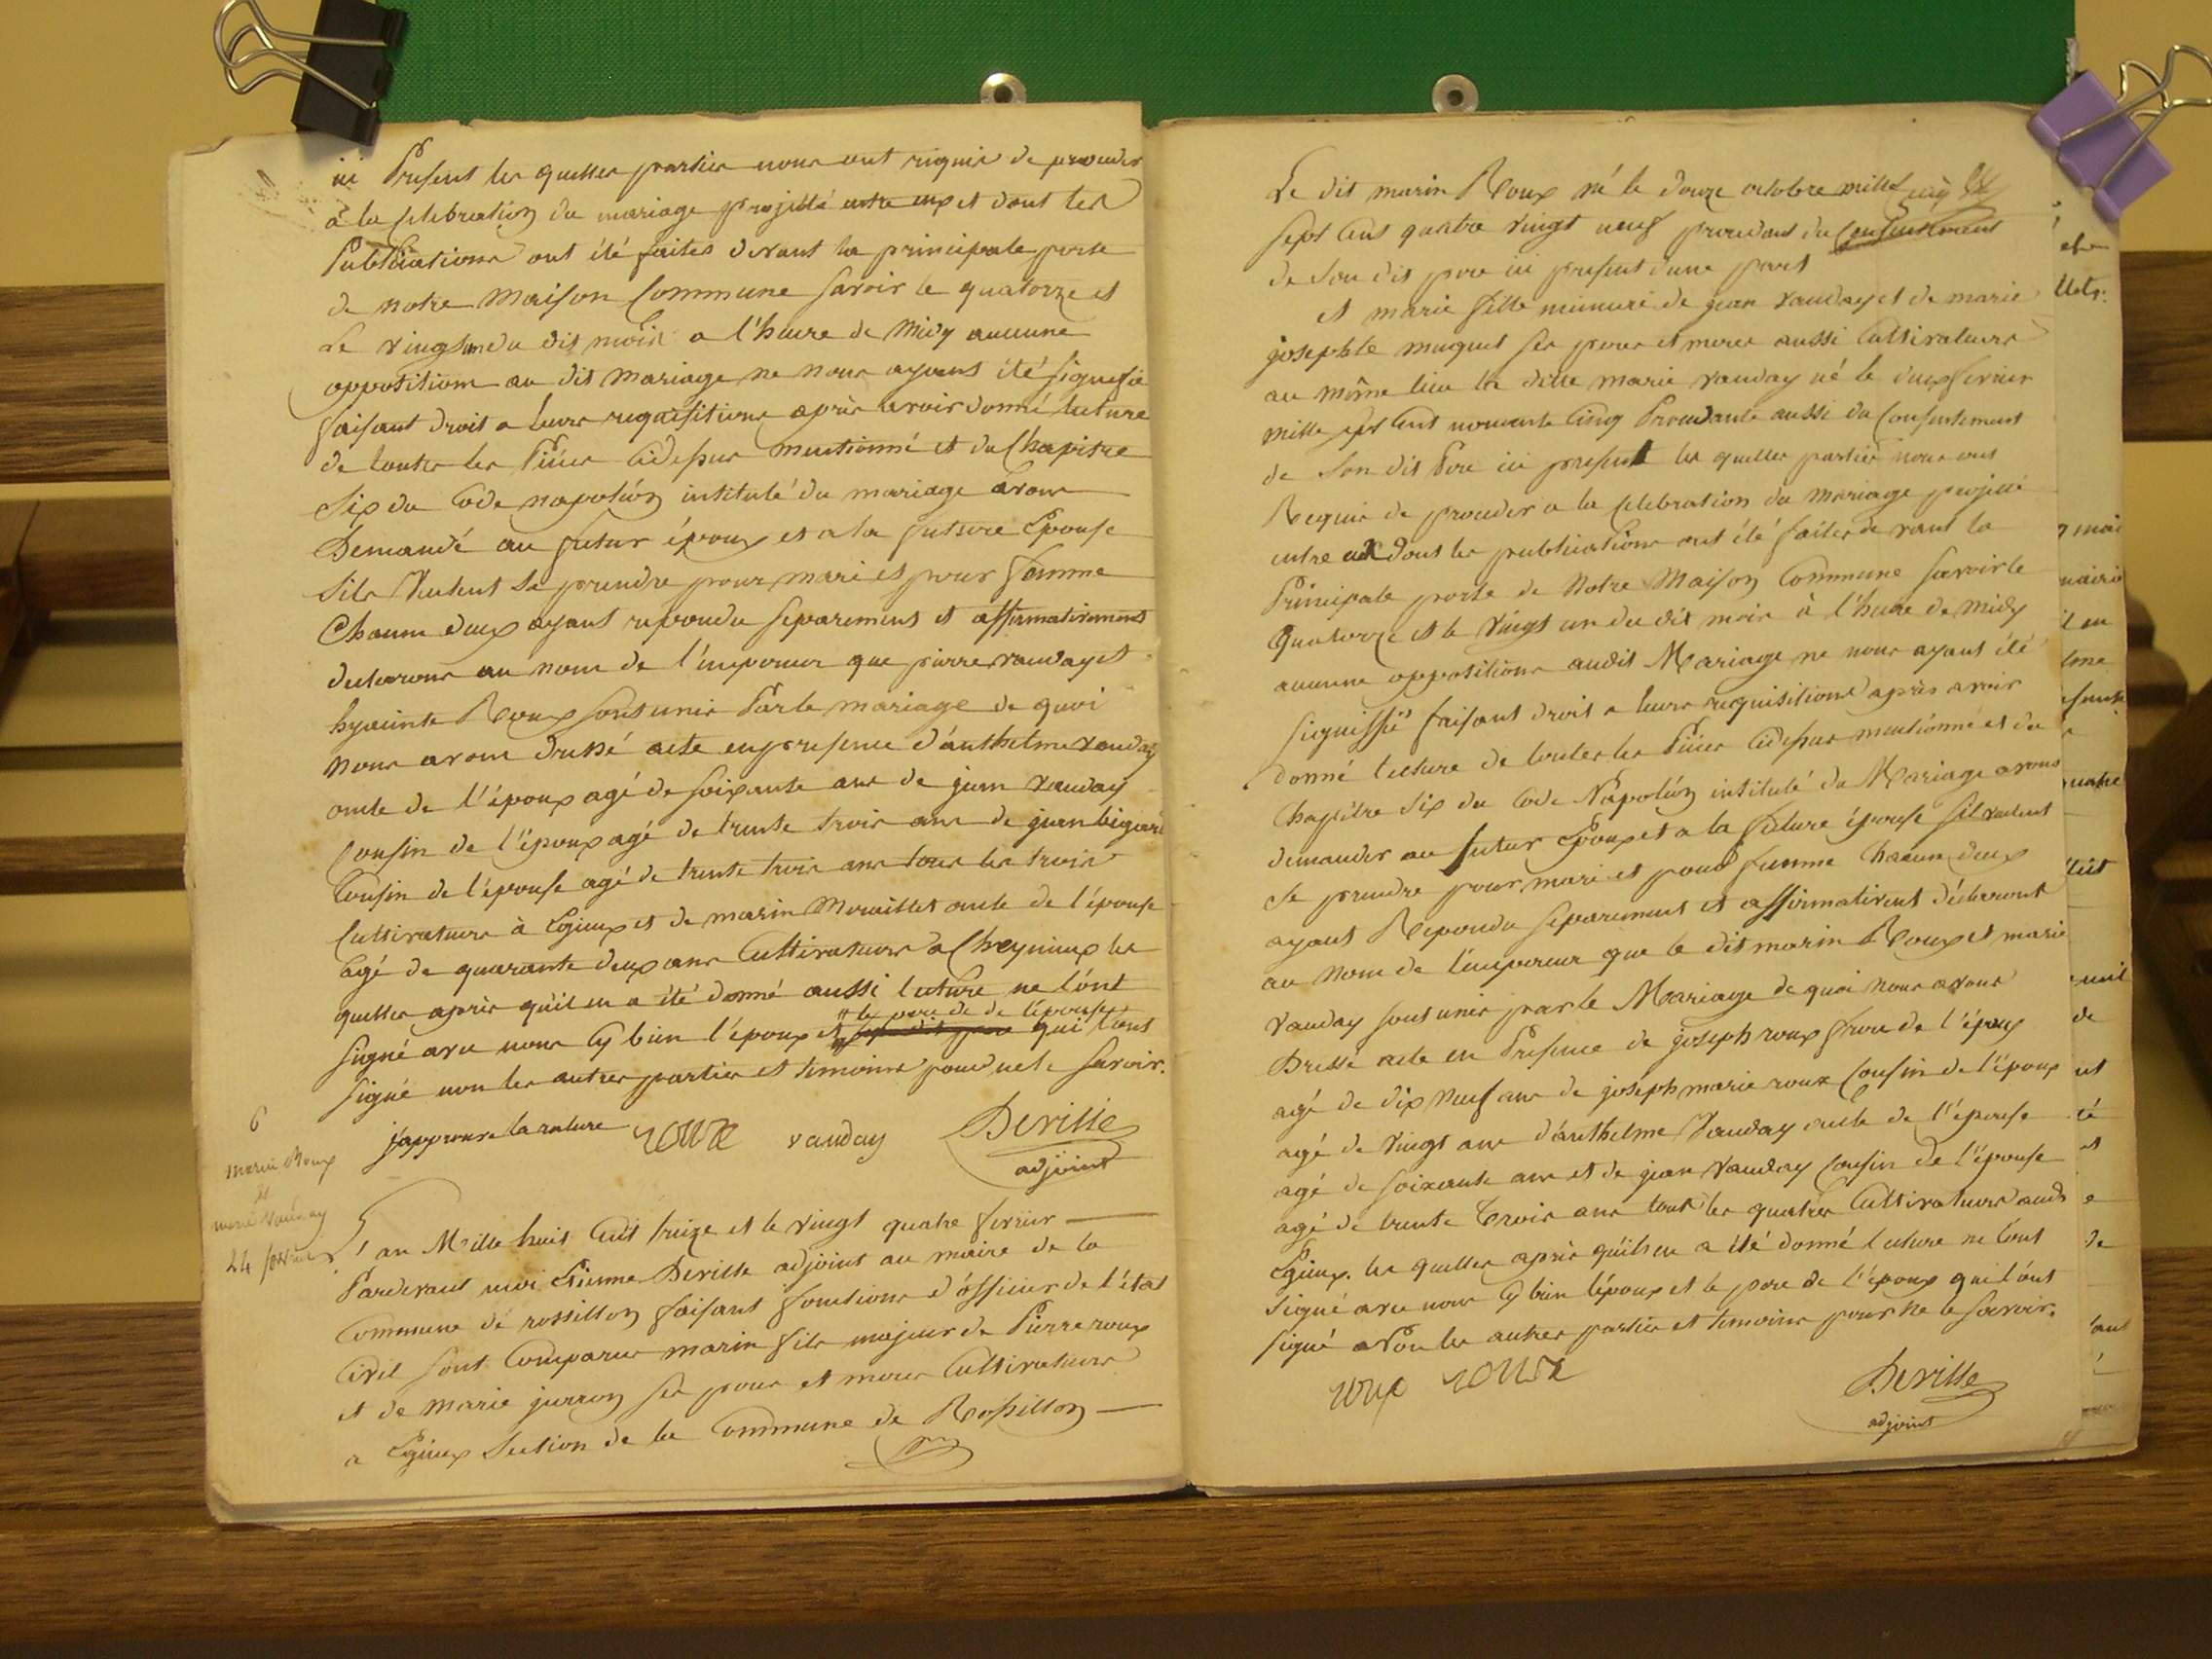 ici Présent les quelles parties nous ont riquis de proceder
à la celebration du mariage projetté entre eux et dont les
Publications ont été faites devant la principale porte
de notre Maison Commune savoir le quatorze et
Le vingt un du dit mois a l'heure de Midy aucune
oppositions au dit mariage ne nous ayans été signifié
faisant droit a leurs requisitions après avoir donné lecture
de toutes les Pièces cidessus mentionné et du Chapitre
Six du Code napoléon intitulé du mariage avons
Demandé au futur époux et a la future Epouse
Sils Veulent se prendre pour mari et pour femme
Chacun deux ayant repondu separement et affirmativement
declarons au nom de l'empereur que pierre vauday et
hyacinte Roux sont unis Par le mariage de quoi
nous avons dressé acte en presence d'anthelme vauday
oncle de l'époux agé de soixante ans de jean vauday
Cousin de l'époux agé de trente trois ans de jean
Cousin de l'épouse agé de trente trois ans tous les trois
Cultivateurs à Egieux et de marin oncle de l'épouse
agé de quarante deux ans Cultivateurs a Cheynieux les
quelles après qu'il en a été donné aussi lecture ne l'ont
le pere de de l'épouse
signé avec nous Cy bien l'époux et qui l'ont
signé non les autres parties et temoins pour ne le savoir.
japprouve la rature roux vauday Deville
adjoint
6
marin Roux
et
marie vauday
24 fevrier
L'an Mille huit Cent treize et le vingt quatre fevrier
Pardevant moi Etienne Deville adjoint au maire de la
Commune de rossillon faisant fonctions d'officier de l'état
Civil sont Comparus marin fils majeur de Pierre roux
et de marie ses peres et meres Cultivateurs
a Egieux Section de la Commune de Rossillon
Le dit marin Roux né le douze octobre mille
sept cens quatre vingt neuf procedant du Consentement
de son dit pere ici present d'une part
et marie fille mineure de jean vauday et de marie
josephte muguet ses peres et meres aussi Cultivateurs
au même lieu la ditte marie vauday né le deux fevrier
mille sept cent nonante Cinq Procedante aussi du Consentement
de Son dit Pere ici present les quelles parties nous ont
Requis de proceder a la celebration du mariage projetté
entre eux dont les publications ont été faites devant la
Principale porte de Notre Maison Commune savoir le
Quatorze et le Vingt un du dit mois à l'heure de Midy
aucune oppositions audit Mariage ne nous ayant été
signiffié faisant droit a leurs requisitions après avoir
donné lecture de toutes les Pièces cidessus mentionné et du
Chapître Six du Code Napoléon intitulé du Mariage avons
demander au futur Epoux et a la future épouse sil veulent
Se prendre pour mari et pour femme Chacun deux
ayant Repondu separement et affirmativent déclaront
au nom de l'empereur que le dit marin Roux et marie
vauday sont unis par le Mariage de quoi nous avons
Dressé acte en Presence de joseph roux frere de l'époux
agé de dix neuf ans de joseph marie roux Cousin de l'époux
agé de Vingt ans d'anthelme Vauday oncle de l'épouse
agé de soixante ans et de jean Vauday Cousin de l'épouse
agé de trente Trois ans tous les quatres Cultivateurs aud
Egieux. les quelles après qu'ils en a été donné lecture ne l'ont
signé avec nous Cy bien l'époux et le pere de l'époux qui l'ont
signé a Non les autres parties et temoins pour ne le savoir.
roux roux
Deville
adjoint